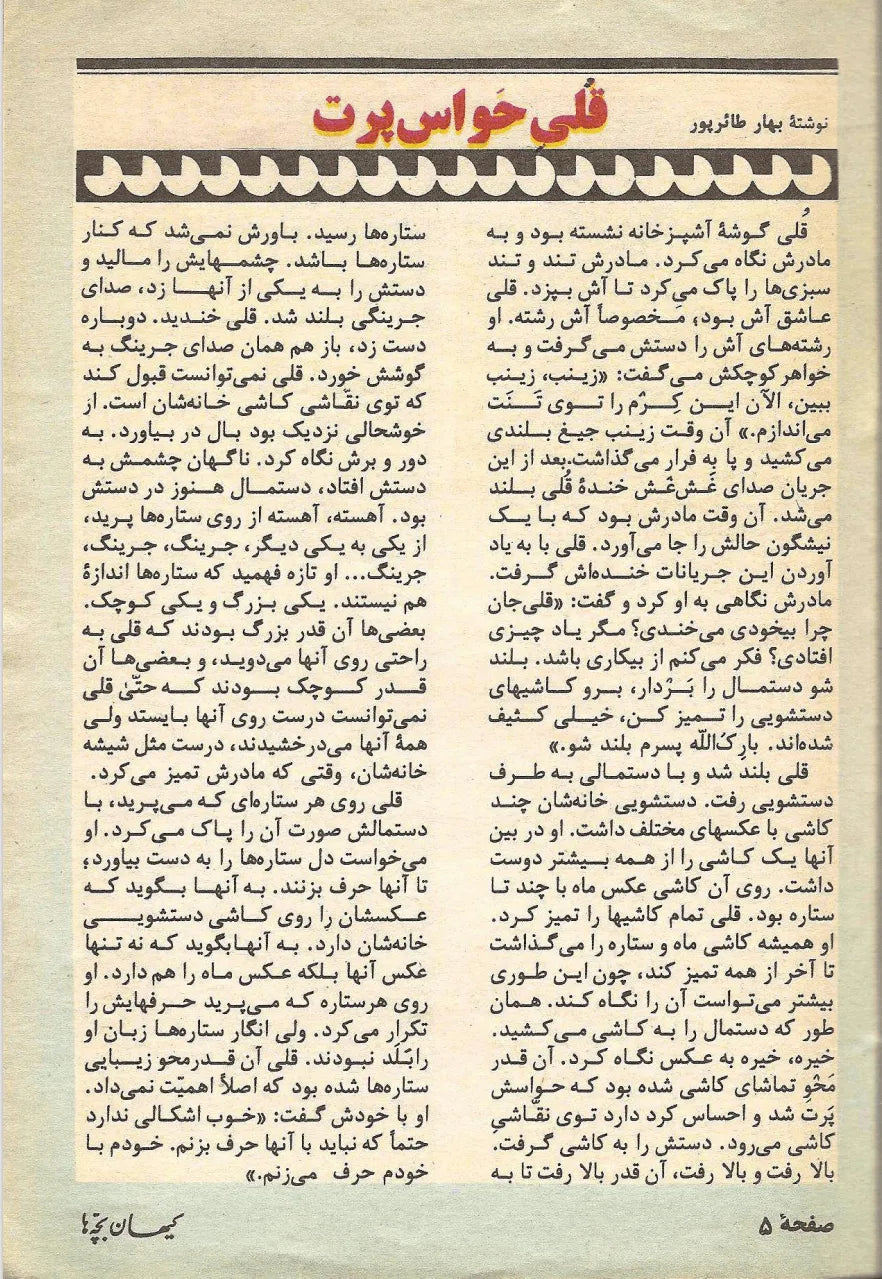 قُلیِ حَواس‌پرت
نوشتهٔ بهار طائرپور
قُلی گوشهٔ آشپزخانه نشسته بود و به
مادرش نگاه می‌کرد. مادرش تند و تند
سبزی‌ها را پاک می‌کرد تا آش بپزد. قلی
عاشق آش بود؛ مَخصوصاً آش رشته. او
رشته‌های آش را دستش می‌گرفت و به
خواهر کوچکش می‌گفت: «زینب، زینب
ببین، الآن این کِرْم را توی تَنَت
می‌اندازم.» آن وقت زینب جیغ بلندی
می‌کشید و پا به فرار می‌گذاشت.بعد از این
جریان صدای غَش‌غَش خندهٔ قُلی بلند
می‌شد. آن وقت مادرش بود که با یک
نیشگون حالش را جا می‌آورد. قلی با به یاد
آوردن این جریانات خنده‌اش گرفت.
مادرش نگاهی به او کرد و گفت: «قلی‌جان
چرا بیخودی می‌خندی؟ مگر یاد چیزی
افتادی؟ فکر می‌کنم از بیکاری باشد. بلند
شو دستمال را بَرْدار، برو کاشیهای
دستشویی را تمیز کن، خیلی کثیف
شده‌اند. بارِک‌اللّه پسرم بلند شو.»
قلی بلند شد و با دستمالی به طرف
دستشویی رفت. دستشویی خانه‌شان چند
کاشی با عکسهای مختلف داشت. او در بین
آنها یک کاشی را از همه بیشتر دوست
داشت. روی آن کاشی عکس ماه با چند تا
ستاره بود. قلی تمام کاشیها را تمیز کرد.
او همیشه کاشی ماه و ستاره را می‌گذاشت
تا آخر از همه تمیز کند، چون این طوری
بیشتر می‌تواست آن را نگاه کند. همان
طور که دستمال را به کاشی می‌کشید.
خیره، خیره به عکس نگاه کرد. آن قدر
مَحْوِ تماشای کاشی شده بود که حواسش
پَرت شد و احساس کرد دارد توی نقّاشیِ
کاشی می‌رود. دستش را به کاشی گرفت.
بالا رفت و بالا رفت، آن قدر بالا رفت تا به
ستاره‌ها رسید. باورش نمی‌شد که کنار
ستاره‌ها باشد. چشمهایش را مالید و
دستش را به یکی از آنها زد، صدای
جرینگی بلند شد. قلی خندید. دوباره
دست زد، باز هم همان صدای جرینگ به
گوشش خورد. قلی نمی‌توانست قبول کند
که توی نقّاشی کاشی خانه‌شان است. از
خوشحالی نزدیک بود بال در بیاورد. به
دور و برش نگاه کرد. ناگهان چشمش به
دستش افتاد، دستمال هنوز در دستش
بود. آهسته، آهسته از روی ستاره‌ها پرید،
از یکی به یکی دیگر، جرینگ، جرینگ،
جرینگ... او تازه فهمید که ستاره‌ها اندازهٔ
هم نیستند. یکی بزرگ و یکی کوچک.
بعضی‌ها آن قدر بزرگ بودند که قلی به
راحتی روی آنها می‌دوید، و بعضی‌ها آن
قدر کوچک بودند که حتّیٰ قلی
نمی‌توانست درست روی آنها بایستد ولی
همهٔ آنها می‌درخشیدند، درست مثل شیشه
خانه‌شان، وقتی که مادرش تمیز می‌کرد.
قلی روی هر ستاره‌ای که می‌پرید، با
دستمالش صورت آن را پاک می‌کرد. او
می‌خواست دل ستاره‌ها را به دست بیاورد؛
تا آنها حرف بزنند. به آنها بگوید که
عکسشان را روی کاشی دستشویی
خانه‌شان دارد. به آنهابگوید که نه تنها
عکس آنها بلکه عکس ماه را هم دارد. او
روی هرستاره که می‌پرید حرفهایش را
تکرار می‌کرد. ولی انگار ستاره‌ها زبان او
رابَلَد نبودند. قلی آن قدرمحو زیبایی
ستاره‌ها شده بود که اصلاً اهمیّت نمی‌داد.
او با خودش گفت: «خوب اشکالی ندارد
حتماً که نباید با آنها حرف بزنم. خودم با
خودم حرف می‌زنم.»
صفحهٔ ۵
کیهان بچّه‌ها